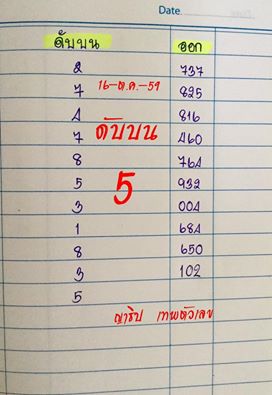 Date
ดับบน ออก
2 737
7 16-ต.ค.-59 825
4 816
7 ดับบน 460
8 764
5 932
3 5 004
1 684
8 650
3 102
5
ญาธิป เทพตัวเลข